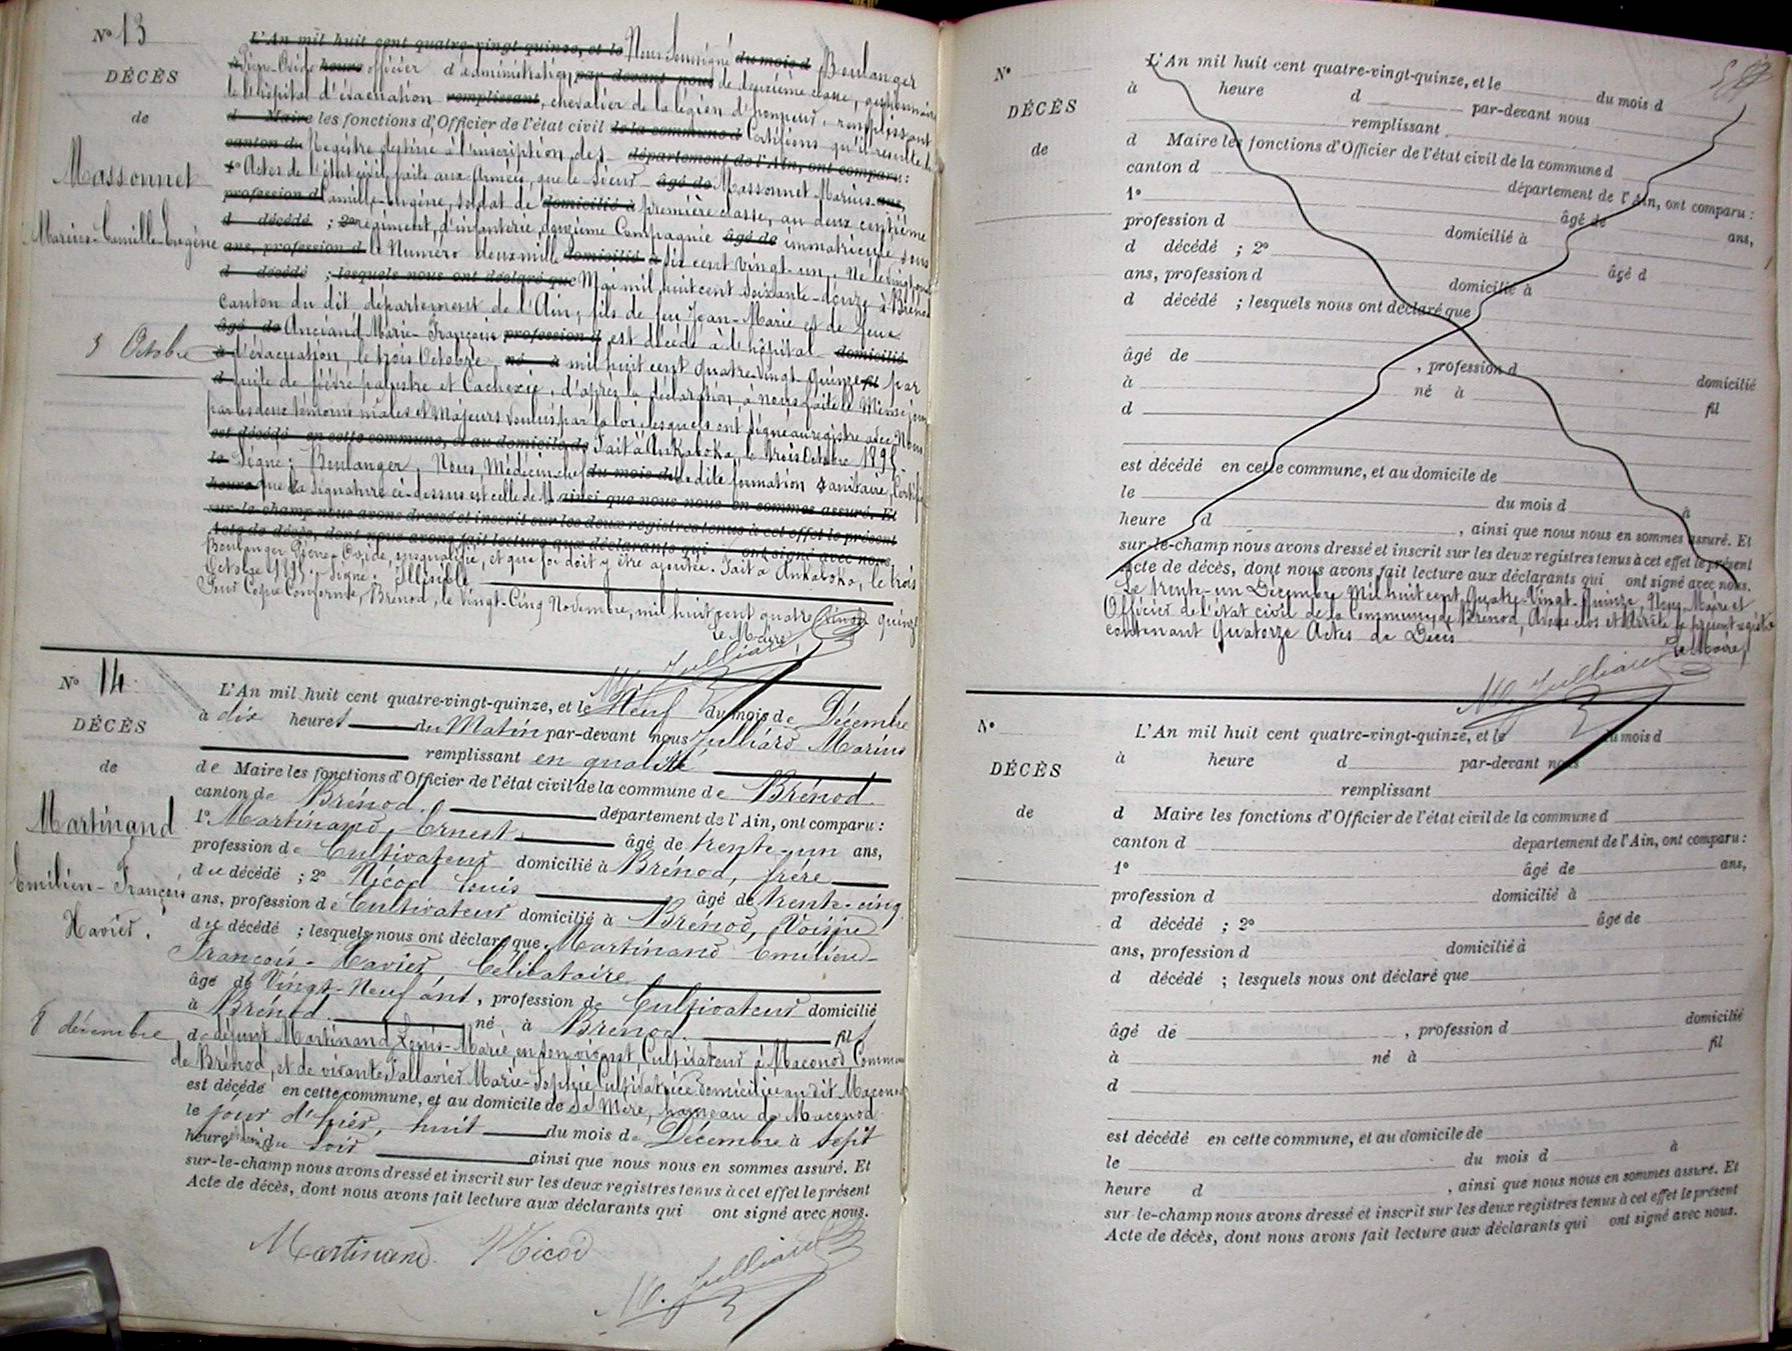 N° 13
DÉCÈS
de
Massonnet
Marius-Camille-Eugène
3 Octobre
L'An mil huit cent quatre-vingt-quinze, et le Nous Soussigné du mois d Boulanger
Pierre-Ovide heure officier d'administration par-devant nous de deuxième classe, gestionnaire
de l'hôpital d'évacuation remplissant, chevalier de la légion d'honneur, remplissant
d Maire les fonctions d'Officier de l'état civil de la commune d Certifions qu'il résulte du
canton du Registre destiné à l'inscription des département de l'Ain, ont comparu :
1° Actes de l'état civil faits aux Armées, que le Sieur âgé de Massonnet Marius ans,
profession d Camille-Eugène, soldat de domicilié à première classe, au deux centième
d décédé ; 2° régiment d'infanterie, douzième Compagnie âgé de immatriculé sous
ans, profession d le Numéro deux mille domicilié à six cent vingt-un, Né le vingt
d décédé ; lesquels nous ont déclaré que Mai mil huit cent soixante-douze à Brénod
Canton du dit département de l'Ain, fils de feu Jean-Marie et de feue
âgé de Anciand Marie-Françoise profession d est décédé à l'hôpital domicilié
à d'évacuation, le trois Octobre né à mil huit cent quatre-vingt-quinze fil par
d suite de fièvre palustre et Cachexie, d'après la déclaration à nous faite le même jour
par les deux témoins mâles et majeurs voulus par la loi, lesquels ont signé au registre avec Nous
est décédé en cette commune, et au domicile de Fait à Ankaboka, le trois Octobre 1895
le Signé : Boulanger, Nous, Médecin chef du mois de la dite formation sanitaire, Certifions
heure que la signature ci-dessus est celle de M ainsi que nous nous en sommes assuré. Et
sur-le-champ nous avons dressé et inscrit sur les deux registres tenus à cet effet le présent
Acte de décès, dont nous avons fait lecture aux déclarants qui ont signé avec nous.
Boulanger Pierre-Ovide, susqualifié, et que foi doit y être ajoutée. Fait à Ankaboka, le trois
Octobre 1895. Signé : Illisible
Pour Copie Conforme, Brénod, le Vingt-Cinq Novembre, mil huit cent quatre vingt quinze
Le Maire,
M. Julliard
N° 14
DÉCÈS
de
Martinand
Emilien-François
Xavier.
8 décembre
L'An mil huit cent quatre-vingt-quinze, et le Neuf du mois de Décembre
à dix heures du Matin par-devant nous Julliard Marius
remplissant en qualité
de Maire les fonctions d'Officier de l'état civil de la commune de Brénod
canton de Brénod département de l'Ain, ont comparu :
1° Martinand, Ernest âgé de trente-un ans,
profession de Cultivateur domicilié à Brénod, frère
du décédé ; 2° Nicod Louis âgé de trente-cinq
ans, profession de Cultivateur domicilié à Brénod, Voisin
du décédé ; lesquels nous ont déclaré que Martinand Emilien-
François-Xavier, Célibataire
âgé de Vingt-Neuf ans, profession de Cultivateur domicilié
à Brénod né à Brénod fils
de défunt Martinand Louis-Marie, en son vivant Cultivateur à Maconod Commune
de Brénod, et de vivante Tallavier Marie-Sophie Cultivatrice domiciliée au dit Maconod
est décédé en cette commune, et au domicile de Sa Mère, hameau de Maconod
le jour d'hier, huit du mois de Décembre à sept
heures du soir ainsi que nous nous en sommes assuré. Et
sur-le-champ nous avons dressé et inscrit sur les deux registres tenus à cet effet le présent
Acte de décès, dont nous avons fait lecture aux déclarants qui ont signé avec nous.
Martinand Nicod
M. Julliard
N°
DÉCÈS
de
L'An mil huit cent quatre-vingt-quinze, et le du mois d
à heure d par-devant nous
remplissant
d Maire les fonctions d'Officier de l'état civil de la commune d
canton d département de l'Ain, ont comparu :
1° âgé de ans,
profession d domicilié à
d décédé ; 2° âgé d
ans, profession d domicilié à
d décédé ; lesquels nous ont déclaré que
âgé de , profession d domicilié
à né à fil
d
est décédé en cette commune, et au domicile de
le du mois d à
heure d , ainsi que nous nous en sommes assuré. Et
sur-le-champ nous avons dressé et inscrit sur les deux registres tenus à cet effet le présent
Acte de décès, dont nous avons fait lecture aux déclarants qui ont signé avec nous.
Le trente-un Décembre Mil huit cent Quatre-Vingt-Quinze, Nous Maire et
Officier de l'état civil de la Commune de Brénod, Avons clos et Arrêté le présent registre
contenant Quatorze Actes de Décès
Le Maire,
M. Julliard
N°
DÉCÈS
de
L'An mil huit cent quatre-vingt-quinze, et le du mois d
à heure d par-devant nous
remplissant
d Maire les fonctions d'Officier de l'état civil de la commune d
canton d département de l'Ain, ont comparu :
1° âgé de ans,
profession d domicilié à
d décédé ; 2° âgé de
ans, profession d domicilié à
d décédé ; lesquels nous ont déclaré que
âgé de , profession d domicilié
à né à fil
d
est décédé en cette commune, et au domicile de
le du mois d à
heure d , ainsi que nous nous en sommes assuré. Et
sur-le-champ nous avons dressé et inscrit sur les deux registres tenus à cet effet le présent
Acte de décès, dont nous avons fait lecture aux déclarants qui ont signé avec nous.